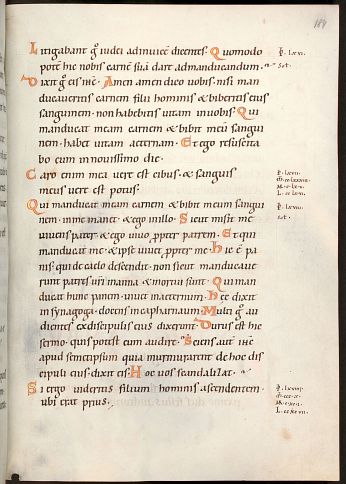 184
Litigabant g̃ iudei adinuicẽ dicentes. Quomodo
potẽ hic nobis carnẽ suã dare admanducandum.
Dixit g̃ eis ihc̃. Amen amen dico uobis. nisi man
ducaueritis carnem filii hominis & biberitis eius
sanguinem. non habebitis uitam inuobis. Qui
manducat meam carnem & bibit meũ sangui
nem. habet uitam aeternam. Et ego resuscita
bo eum innouissimo die.
Caro enim mea uere est cibus. & sanguis
meus uere est potus.
Qui manducat meam carnem & bibit meum sangui
nem. inme manet. & ego inillo. Sicut misit me
uiuens pater. & ego uiuo ꝓpter patrem. Et qui
manducat me. & ipse uiuet ꝓpter me. Hic ẽ pa
nis qui de caelo descendit. non sicut manducaue
runt patres uri manna & mortui sunt. Qui man
ducat hunc panem. uiuet inaeternum. Hec dixit
in synagoga. docens incapharnaum. Multi g̃ au
dientes exdiscipulis eius dixerunt. Durus est hic
sermo. quis potest eum audire. Sciens aut ihc̃
apud semetipsum quia murmurarent de hoc dis
cipuli eius. dixit eis. Hoc uos scandalizat.
Si ergo uideritis filium hominis ascendentem.
ubi erat prius.